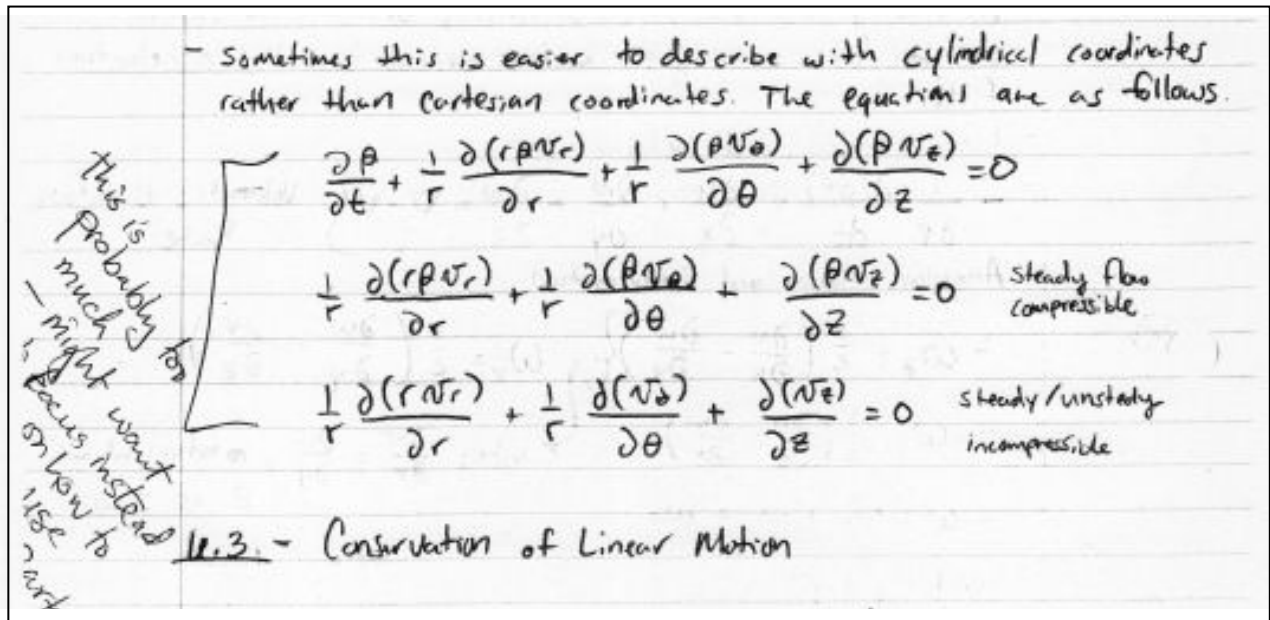 - Sometimes this is easier to describe with cylindrical coordinates
rather than cartesian coordinates. The equations are as follows.
∂ρ/∂t + 1/r ∂(rρVr)/∂r + 1/r ∂(ρVθ)/∂θ + ∂(ρVz)/∂z = 0
1/r ∂(rρVr)/∂r + 1/r ∂(ρVθ)/∂θ + ∂(ρVz)/∂z = 0 steady flow
compressible
1/r ∂(rVr)/∂r + 1/r ∂(Vθ)/∂θ + ∂(Vz)/∂z = 0 steady/unsteady
incompressible
this is
probably too
much
- might want
focus instead
on how to
use
- Conservation of Linear Motion